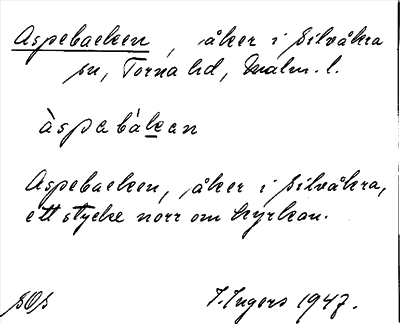 Aspebacken, åker i Silvåkra
sn, Torna hd, Malm. l.
àspəbákan
Aspebacken, åker i Silvåkra,
ett stycke norr om kyrkan.
SOS
I. Ingers 1947.